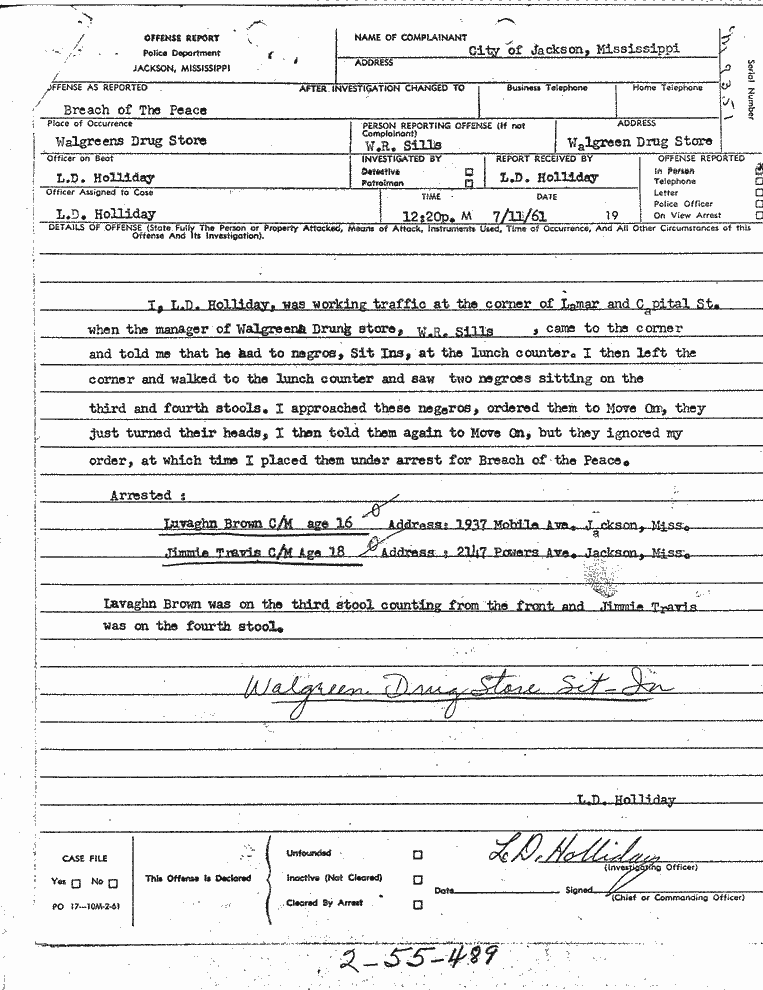 OFFENSE REPORT
Police Department
JACKSON, MISSISSIPPI
NAME OF COMPLAINANT
City of Jackson, Mississippi
ADDRESS
Serial Number
OFFENSE AS REPORTED
AFTER INVESTIGATION CHANGED TO
Business Telephone
Home Telephone
Breach of The Peace
Place of Occurrence
Walgreens Drug Store
PERSON REPORTING OFFENSE (If not Complainant)
W.R. Sills
ADDRESS
Walgreen Drug Store
Officer on Beat
L.D. Holliday
INVESTIGATED BY
Detective
Patrolman
REPORT RECEIVED BY
L.D. Holliday
OFFENSE REPORTED
In Person
Telephone
Letter
Police Officer
On View Arrest
Officer Assigned to Case
L.D. Holliday
TIME
12:20p. M
DATE
7/11/61 19
DETAILS OF OFFENSE (State Fully The Person or Property Attacked, Means of Attack, Instruments Used, Time of Occurrence, And All Other Circumstances of this
Offense And Its Investigation).
I, L.D. Holliday, was working traffic at the corner of Lamar and Capital St.
when the manager of Walgreens Drung store, W.R. Sills , came to the corner
and told me that he had to negros, Sit Ins, at the lunch counter. I then left the
corner and walked to the lunch counter and saw two negroes sitting on the
third and fourth stools. I approached these negeros, ordered them to Move On, they
just turned their heads, I then told them again to Move On, but they ignored my
order, at which time I placed them under arrest for Breach of the Peace.
Arrested :
Luvaghn Brown C/M age 16 Address: 1937 Mobile Ave. Jackson, Miss.
Jimmie Travis C/M Age 18 Address : 2147 Powers Ave. Jackson, Miss.
Lavaghn Brown was on the third stool counting from the front and Jimmie Travis
was on the fourth stool.
Walgreen Drug Store Sit-In
L.D. Holliday
CASE FILE
Yes No
PO 17-10M-2-61
This Offense is Declared
Unfounded
Inactive (Not Cleared)
Cleared By Arrest
L.D. Holliday
(Investigating Officer)
Date Signed
(Chief or Commanding Officer)
2-55-489